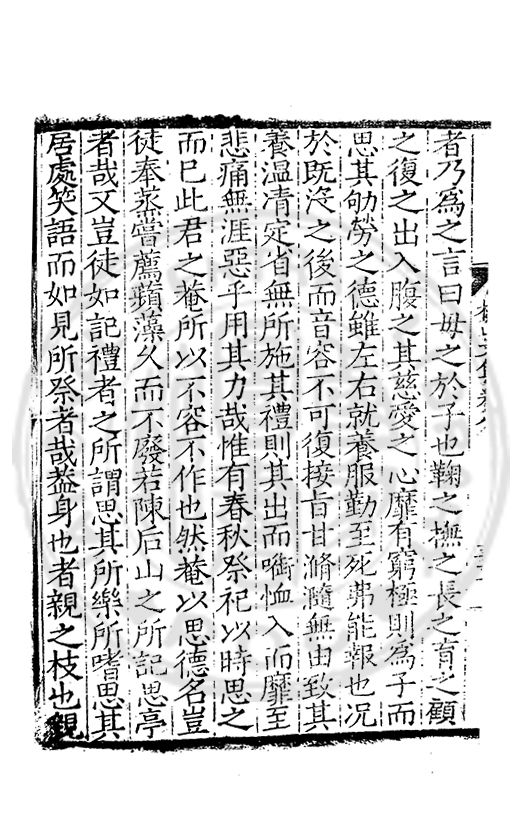 者乃為之言曰毋之於子也鞠之撫之長之育之顧
之復之出入腹之其慈愛之心靡有窮極則為子而
思其劬勞之德雖左右就養服勤至死弗能報也况
於既沒之後而音容不可復接旨甘滫瀡無由致其
養溫凊定省無所施其禮則其出而啣恤入而靡至
悲痛無涯惡乎用其力哉惟有春秋祭祀以時思之
而已此君之菴所以不容不作也然菴以思德名豈
徒奉蒸嘗薦蘋藻久而不廢若陳后山之所記思亭
者哉又豈徒如記禮者之所謂思其所樂所嗜思其
居處笑語而如見所祭者哉葢身也者親之枝也親